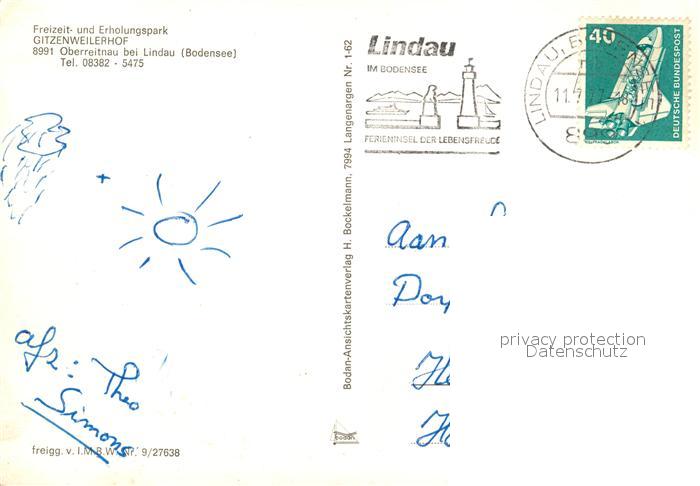 Freizeit- und Erholungspark
GITZENWEILERHOF
8991 Oberreitnau bei Lindau (Bodensee)
Tel. 08382 - 5475
afz: Theo
Simons
freigg. v. I.M.B.W. Nr. 9/27638
Bodan-Ansichtskartenverlag H. Bockelmann, 7994 Langenargen Nr. 1-62
bodan
Lindau
IM BODENSEE
FERIENINSEL DER LEBENSFREUDE
LINDAU,
11.
40
DEUTSCHE BUNDESPOST
Aan
privacy protection
Datenschutz